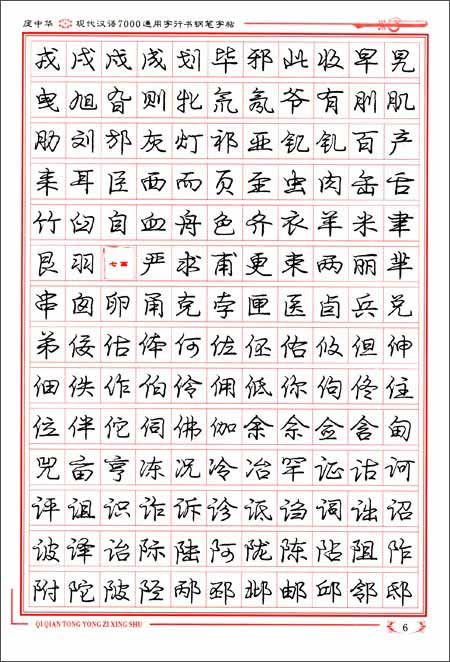 庞中华 现代汉语7000通用字行书钢笔字帖
戎戌戍成划毕邪此收早旯
曳旭旮则牝氘氖爷有刖肌
肋刘邬灰灯祁亚钇钆百产
耒耳臣西而页至虫肉缶舌
竹臼自血舟色齐衣羊米聿
艮羽七画严求甫更束两丽芈
串囱卵甬克孛匣医卣兵兑
弟佞估体何佐伾佑攸但伸
佃佚作伯伶佣低你佝佟住
位伴佗伺佛伽余佘佥含甸
兕亩亨冻况冷冶罕证诂诃
评诅识诈诉诊诋诌词诎诏
诐译诒际陆阿陇陈阽阻阼
附陀陂陉邴邳邶邮邱邻邸
QI QIAN TONG YONG ZI XING SHU
6